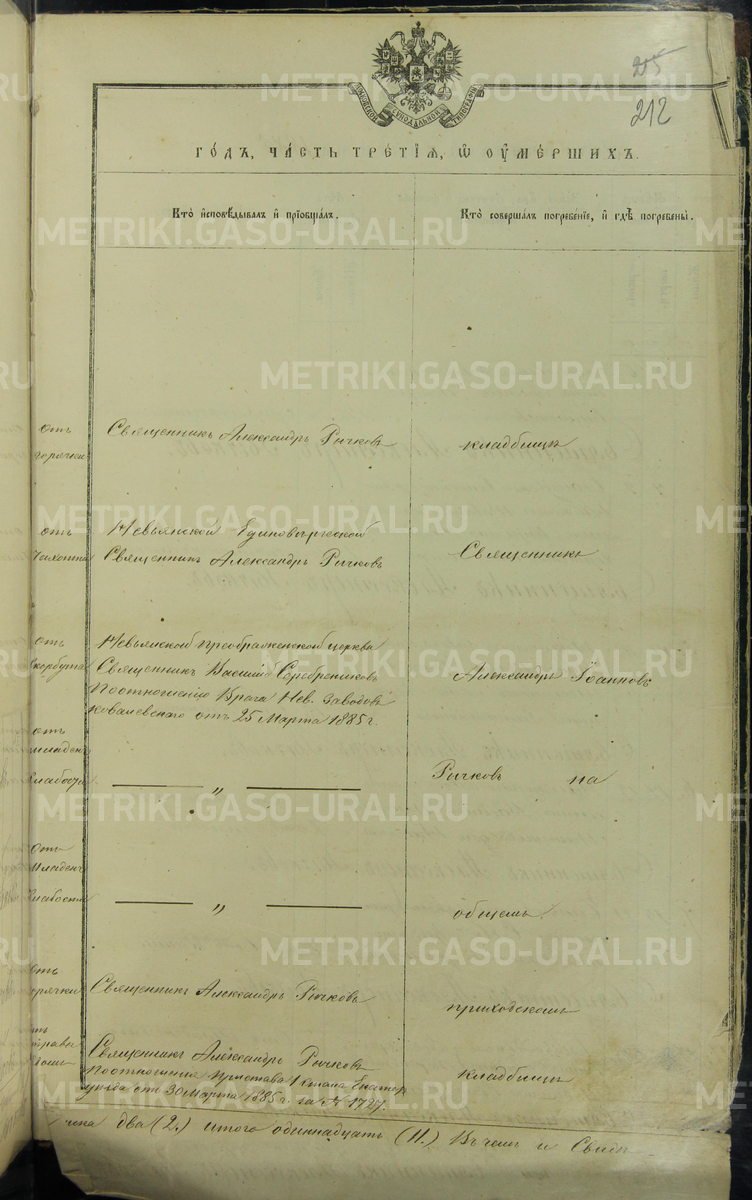 215
212
МОСКОВСКОЙ СУНОДАЛЬНОЙ ТИПОГРАФІИ
ГО́ДЪ, ЧА́СТЬ ТРЕ́ТІЯ, Ѿ ОУ҆МЕ́РШИХЪ.
Кто̀ и҆сповѣ́дывалъ и҆ прїѡбща́лъ.
Кто̀ соверша́лъ погребе́нїе, и҆ гдѣ̀ погребены̀.
отъ
горячки
Священникъ Александръ Рычковъ
кладбищѣ
отъ
Чахотки
Невьянской Единовѣрческой
Священникъ Александръ Рычковъ
Священникъ
отъ
Скорбута
Невьянской преображенской церкви
Священникъ Василій Серебрениковъ
По отношенію Врача Нев. Заводовъ
Ковалевскаго отъ 25 Марта 1885 г.
Александръ Іоанновъ
отъ
младен
слабости
— „ —
Рычковъ на
отъ
Младен
слабости
— „ —
общемъ
отъ
горячки
Священникъ Александръ Рычковъ
приходскомъ
Священникъ Александръ Рычковъ
По отношенію Пристава 1 стана Екатер
уѣзда отъ 30 Марта 1885 г. за № 1727.
кладбищѣ
два (2.) итого одиннадцать (11.) Въ чемъ и Свидѣ
METRIKI.GASO-URAL.RU